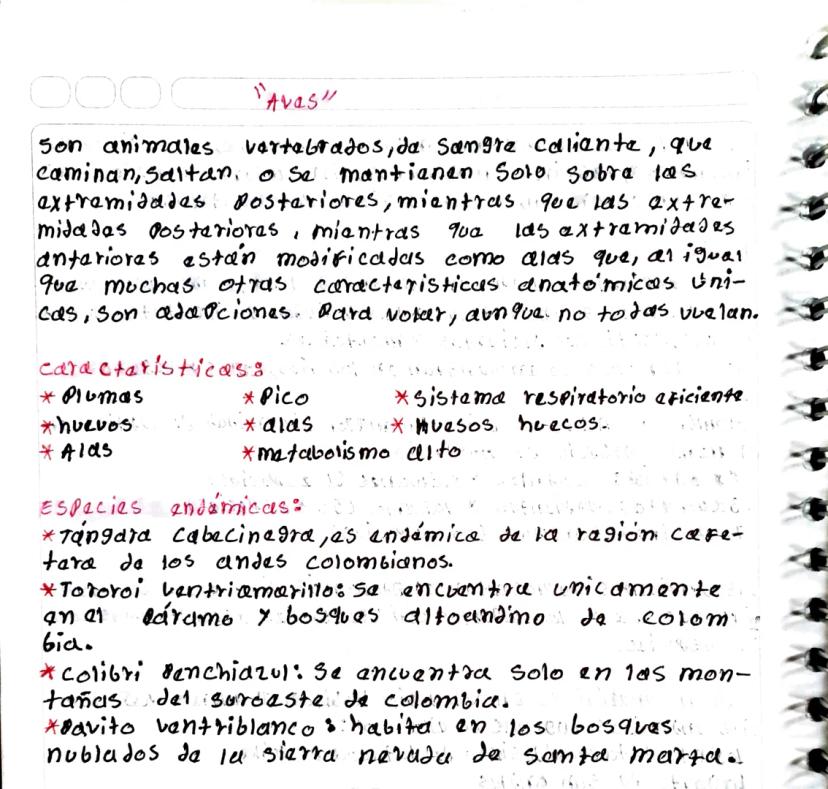 "Aves"
Son animales vertebrados, de sangre caliente, que
caminan, saltan, o se mantienen solo sobre las
extremidades posteriores, mientras que las extre-
midades posteriores, mientras que las extremidades
anteriores están modificadas como alas que, al igual
que muchas otras características anatómicas úni-
cas, son adapciones para volar, aunque no todas vuelan.
Características:
* Plumas * Pico * sistema respiratorio eficiente
* huevos * alas * Huesos huecos
* Alas * metabolismo alto
Especies endémicas:
* Tángara cabecinegra, es endémica de la región cafe-
tera de los andes colombianos.
* Tororoi ventriamarillo: se encuentra unicamente
en el páramo y bosques altoandino de colom
bia.
* Colibrí penchiazul: se encuentra solo en las mon-
tañas del suroeste de colombia.
* Pavito ventriblanco: habita en los bosques
nublados de la sierra nevada de santa marta.